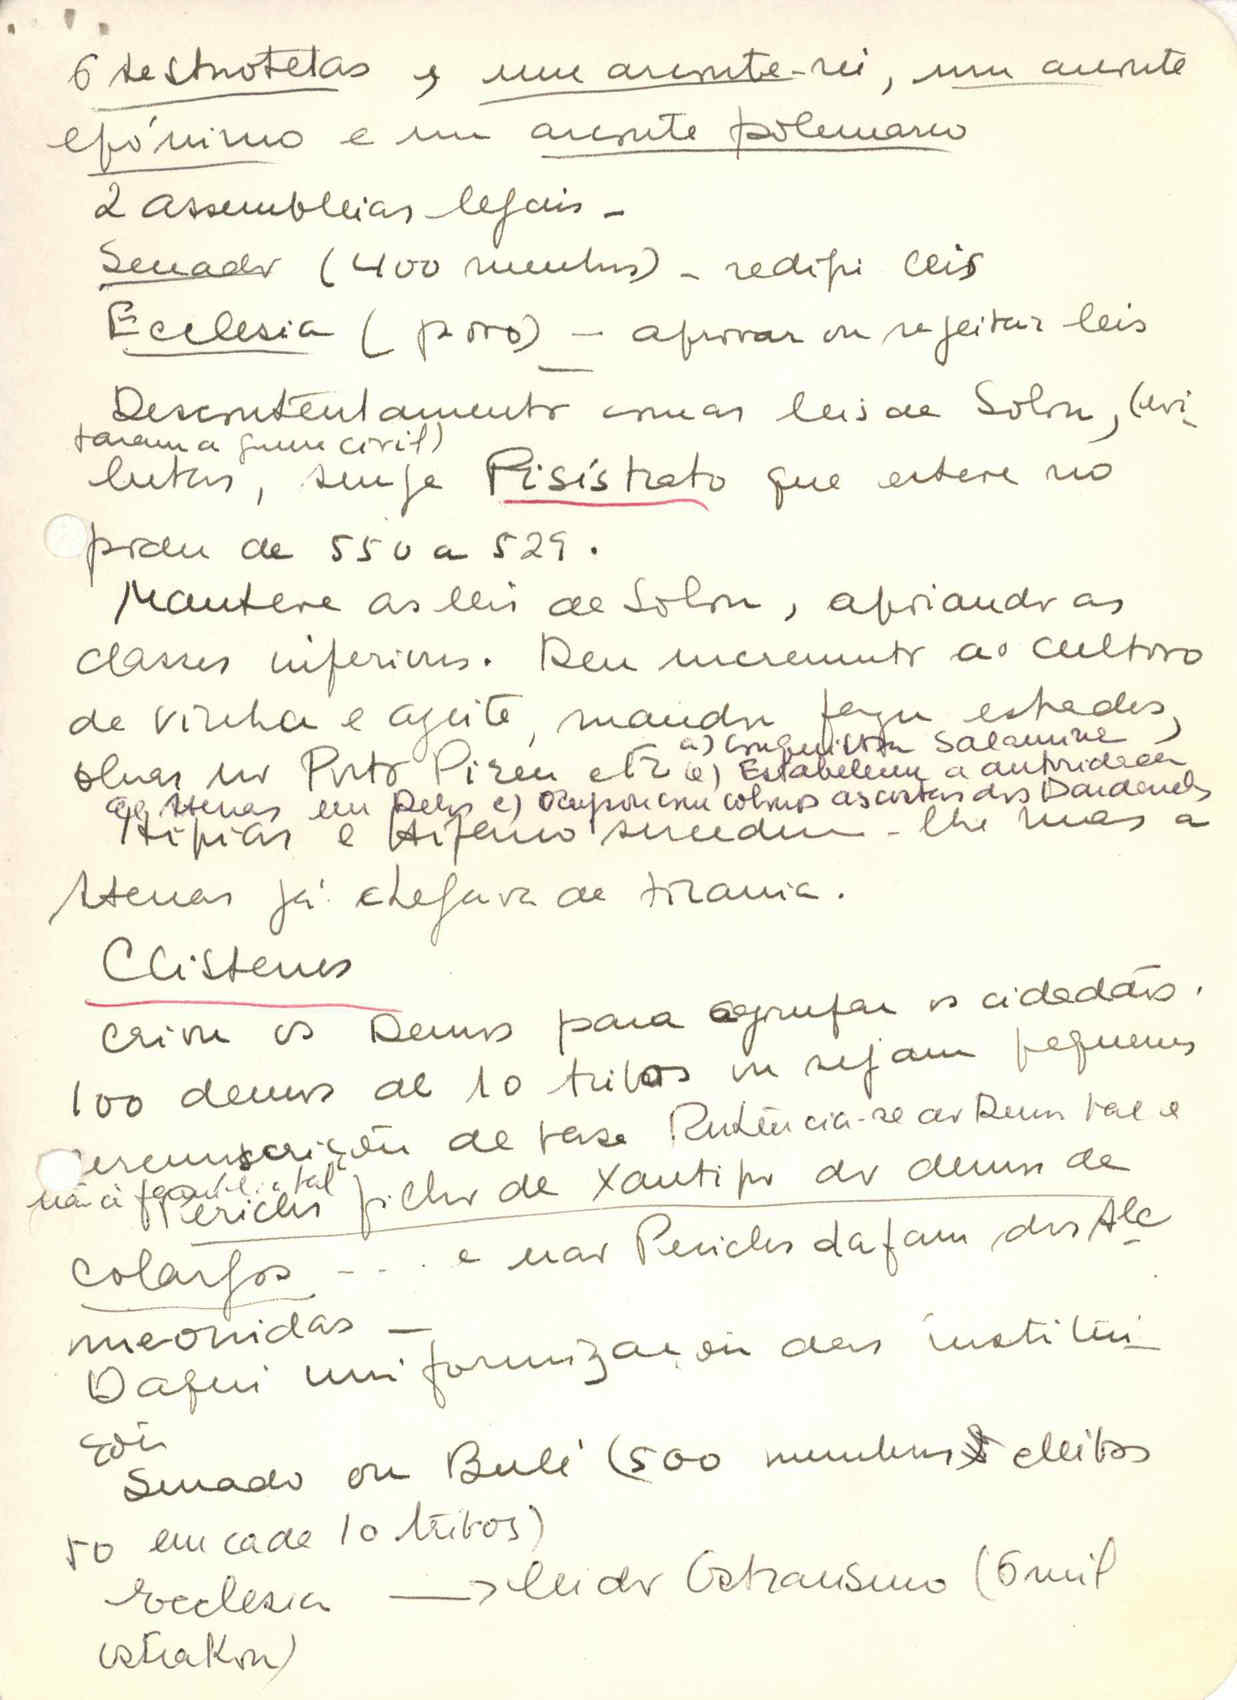 6 testmotetas e, um arconte-rei, um arconte
epónimo e um arconte polemarco
2 assembleias legais -
Senado (400 membros) - redigi leis
Ecclesia (povo) - aprovar ou rejeitar leis
Descontentamento com as leis de Sólon, (evi-
taram a guerra civil)
lutas, surge Pisístrato que esteve no
poder de 550 a 529.
Manteve as leis de Sólon, apoiando as
classes inferiores. Deu incremento ao cultivo
de vinha e azeite, mandou fazer estradas,
a) Conquistou Salamina
obras no Porto Pireu etc b) Estabeleceu a autoridade
de Atenas em Delos c) Ocupou com colonos as costas dos Dardanelos
Hipias e Hiparco sucedem-lhe mas a
Atenas já chegava de tirania.
Clistenes
criou os Demos para agrupar os cidadãos.
100 demos de 10 tribos ou sejam pequenas
circunscrição de base Pertencia-se ao Demos tal e
não à família tal
Péricles filho de Xantipo do demos de
colargos - - . . e não Péricles da fam. dos Alc
meonidas -
Daqui uniformização das institui-
ções
Senado ou Bulé (500 membros eleitos
50 em cada 10 tribos)
Ecclesia → lei do Ostracismo (6 mil
ostrakon)